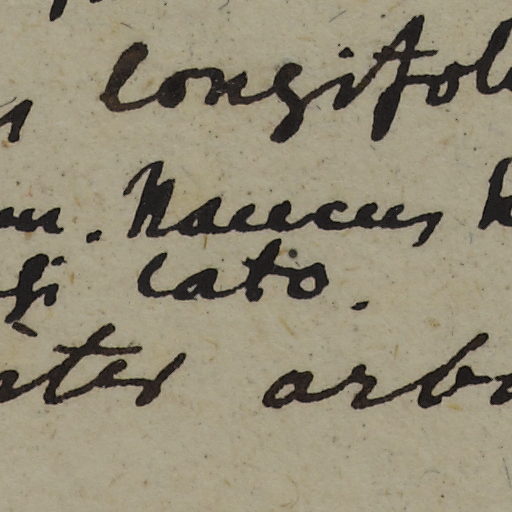 longifol
. Naucus
gi lato.
ater arbo